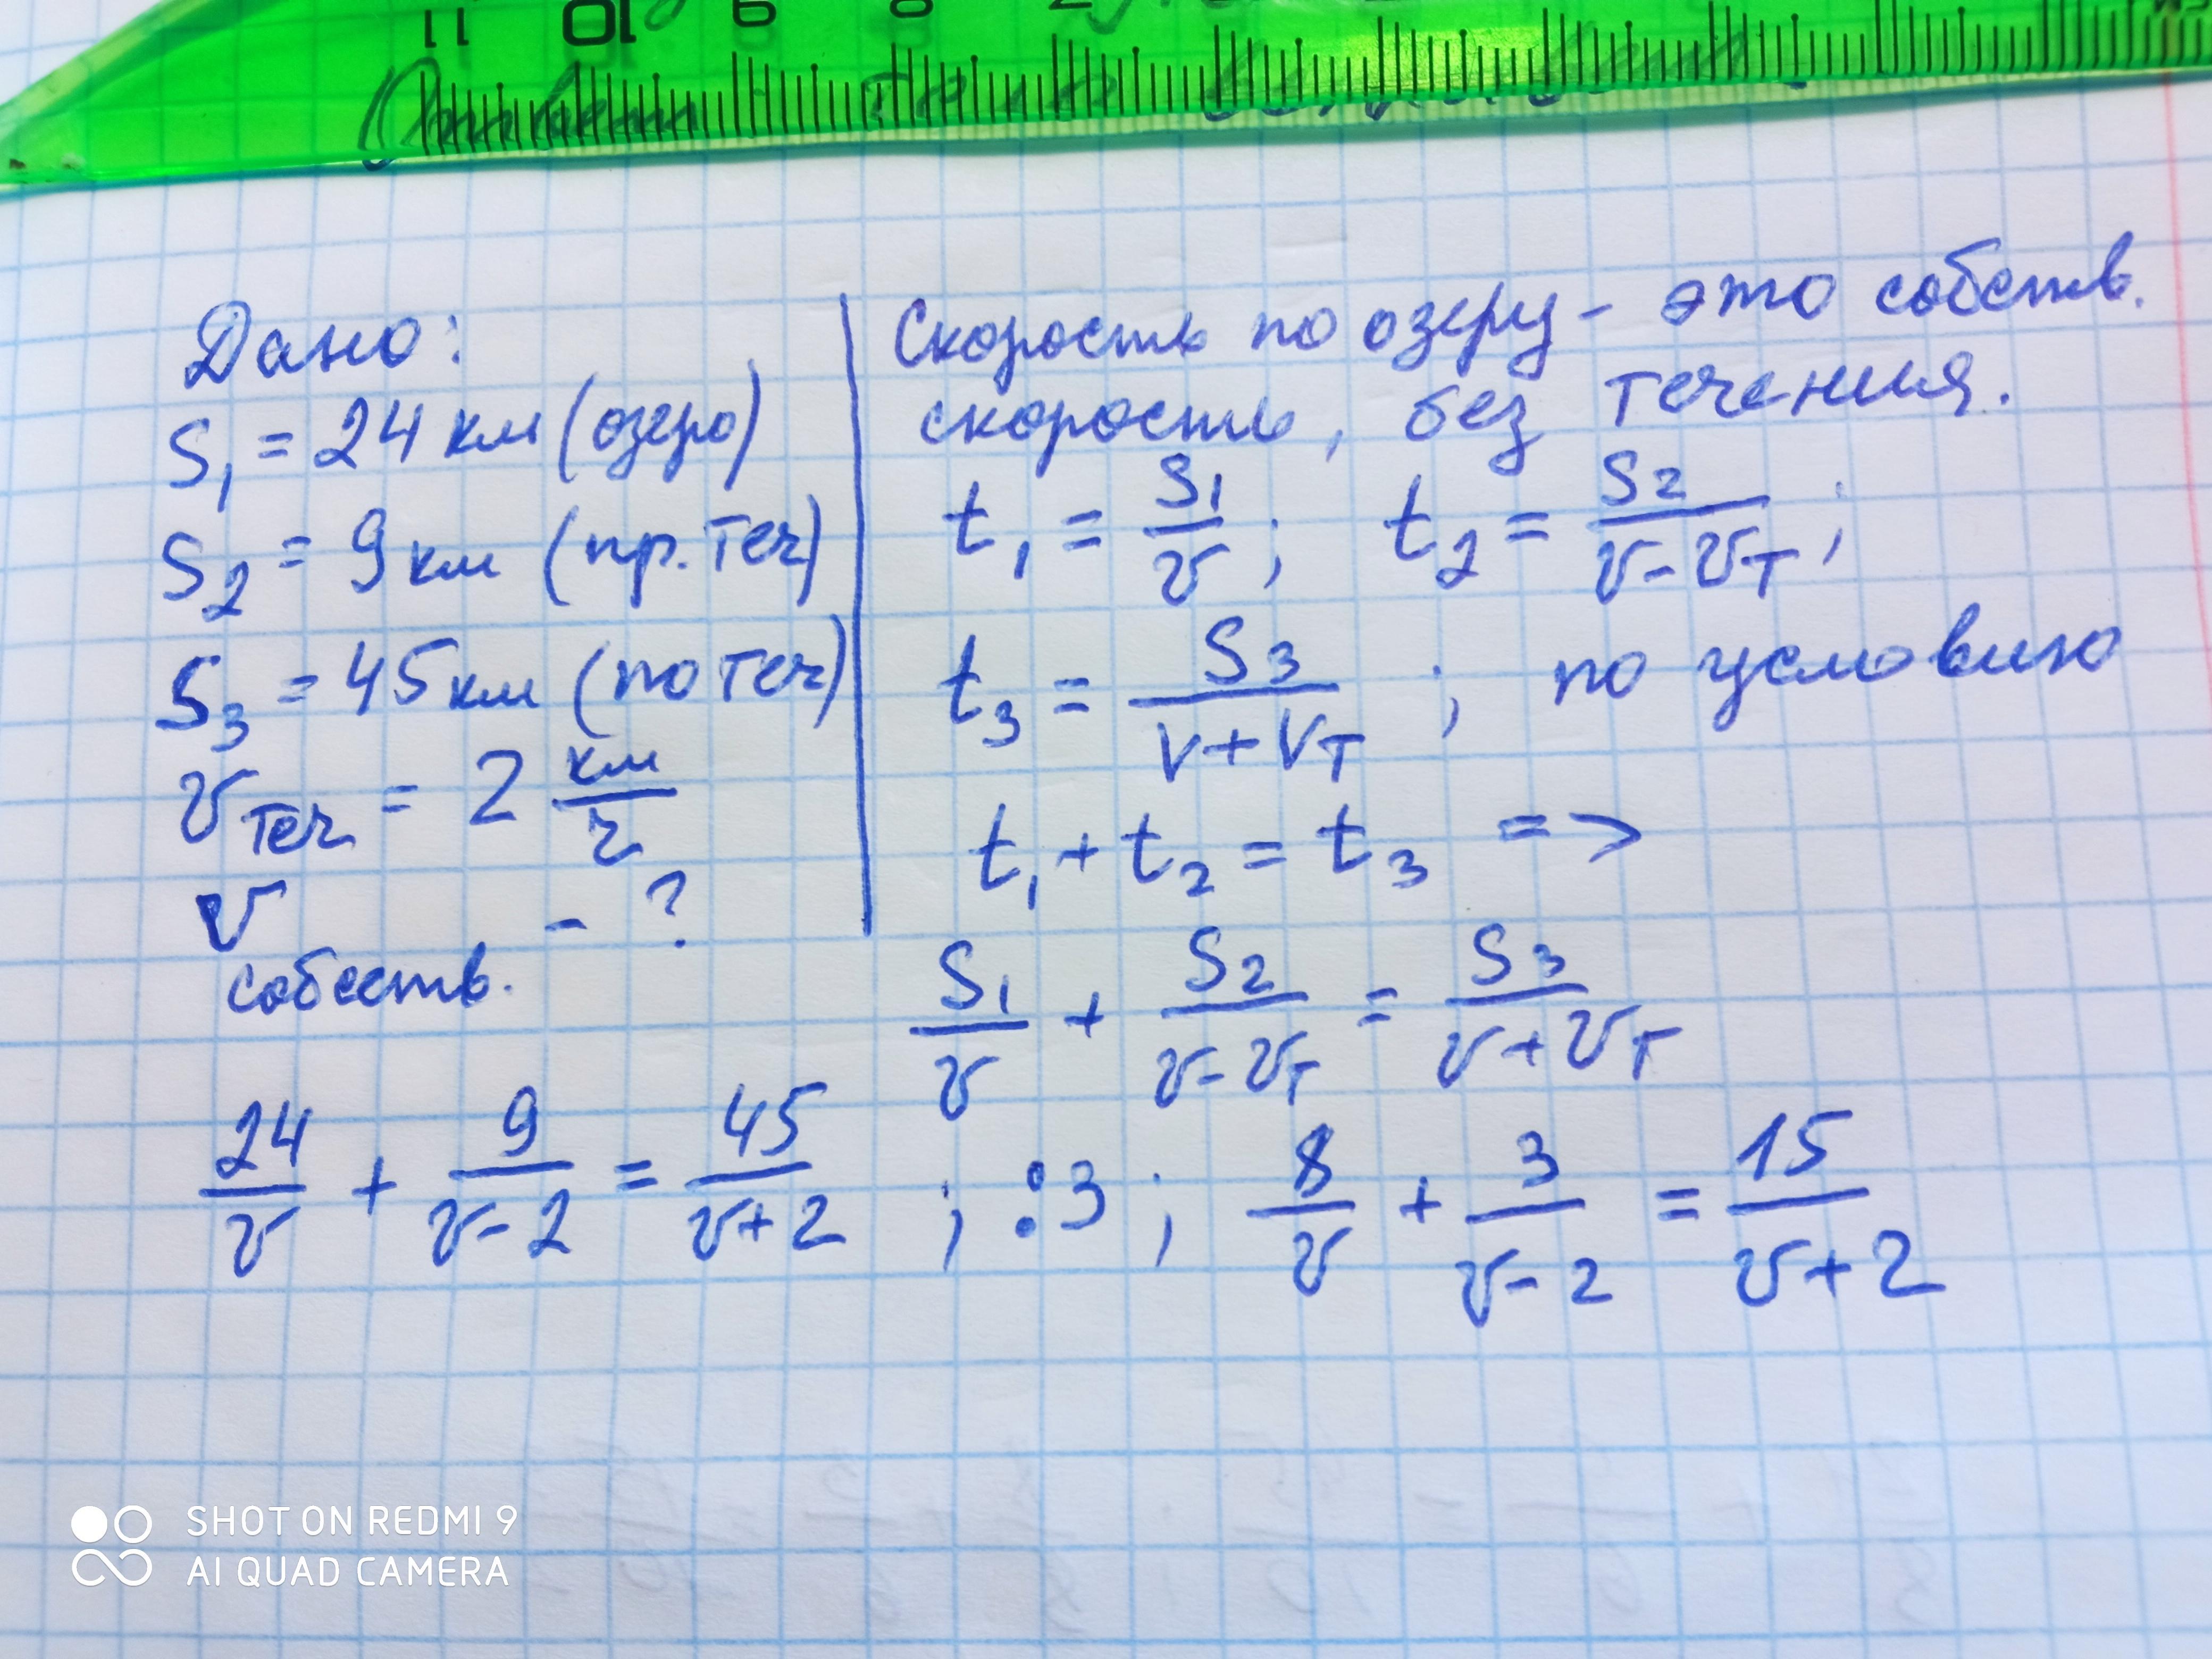 11 10 9 8 7
Дано:
S₁ = 24 км (озеро)
S₂ = 9 км (пр. теч)
S₃ = 45 км (по теч)
v теч = 2 км/ч
v собств. - ?
Скорость по озеру - это собств.
скорость, без течения.
t₁ = S₁/v ; t₂ = S₂/(v - vт) ;
t₃ = S₃/(v + vт) ; по условию
t₁ + t₂ = t₃ =>
S₁/v + S₂/(v - vт) = S₃/(v + vт)
24/v + 9/(v - 2) = 45/(v + 2) ; :3 ; 8/v + 3/(v - 2) = 15/(v + 2)
SHOT ON REDMI 9
AI QUAD CAMERA